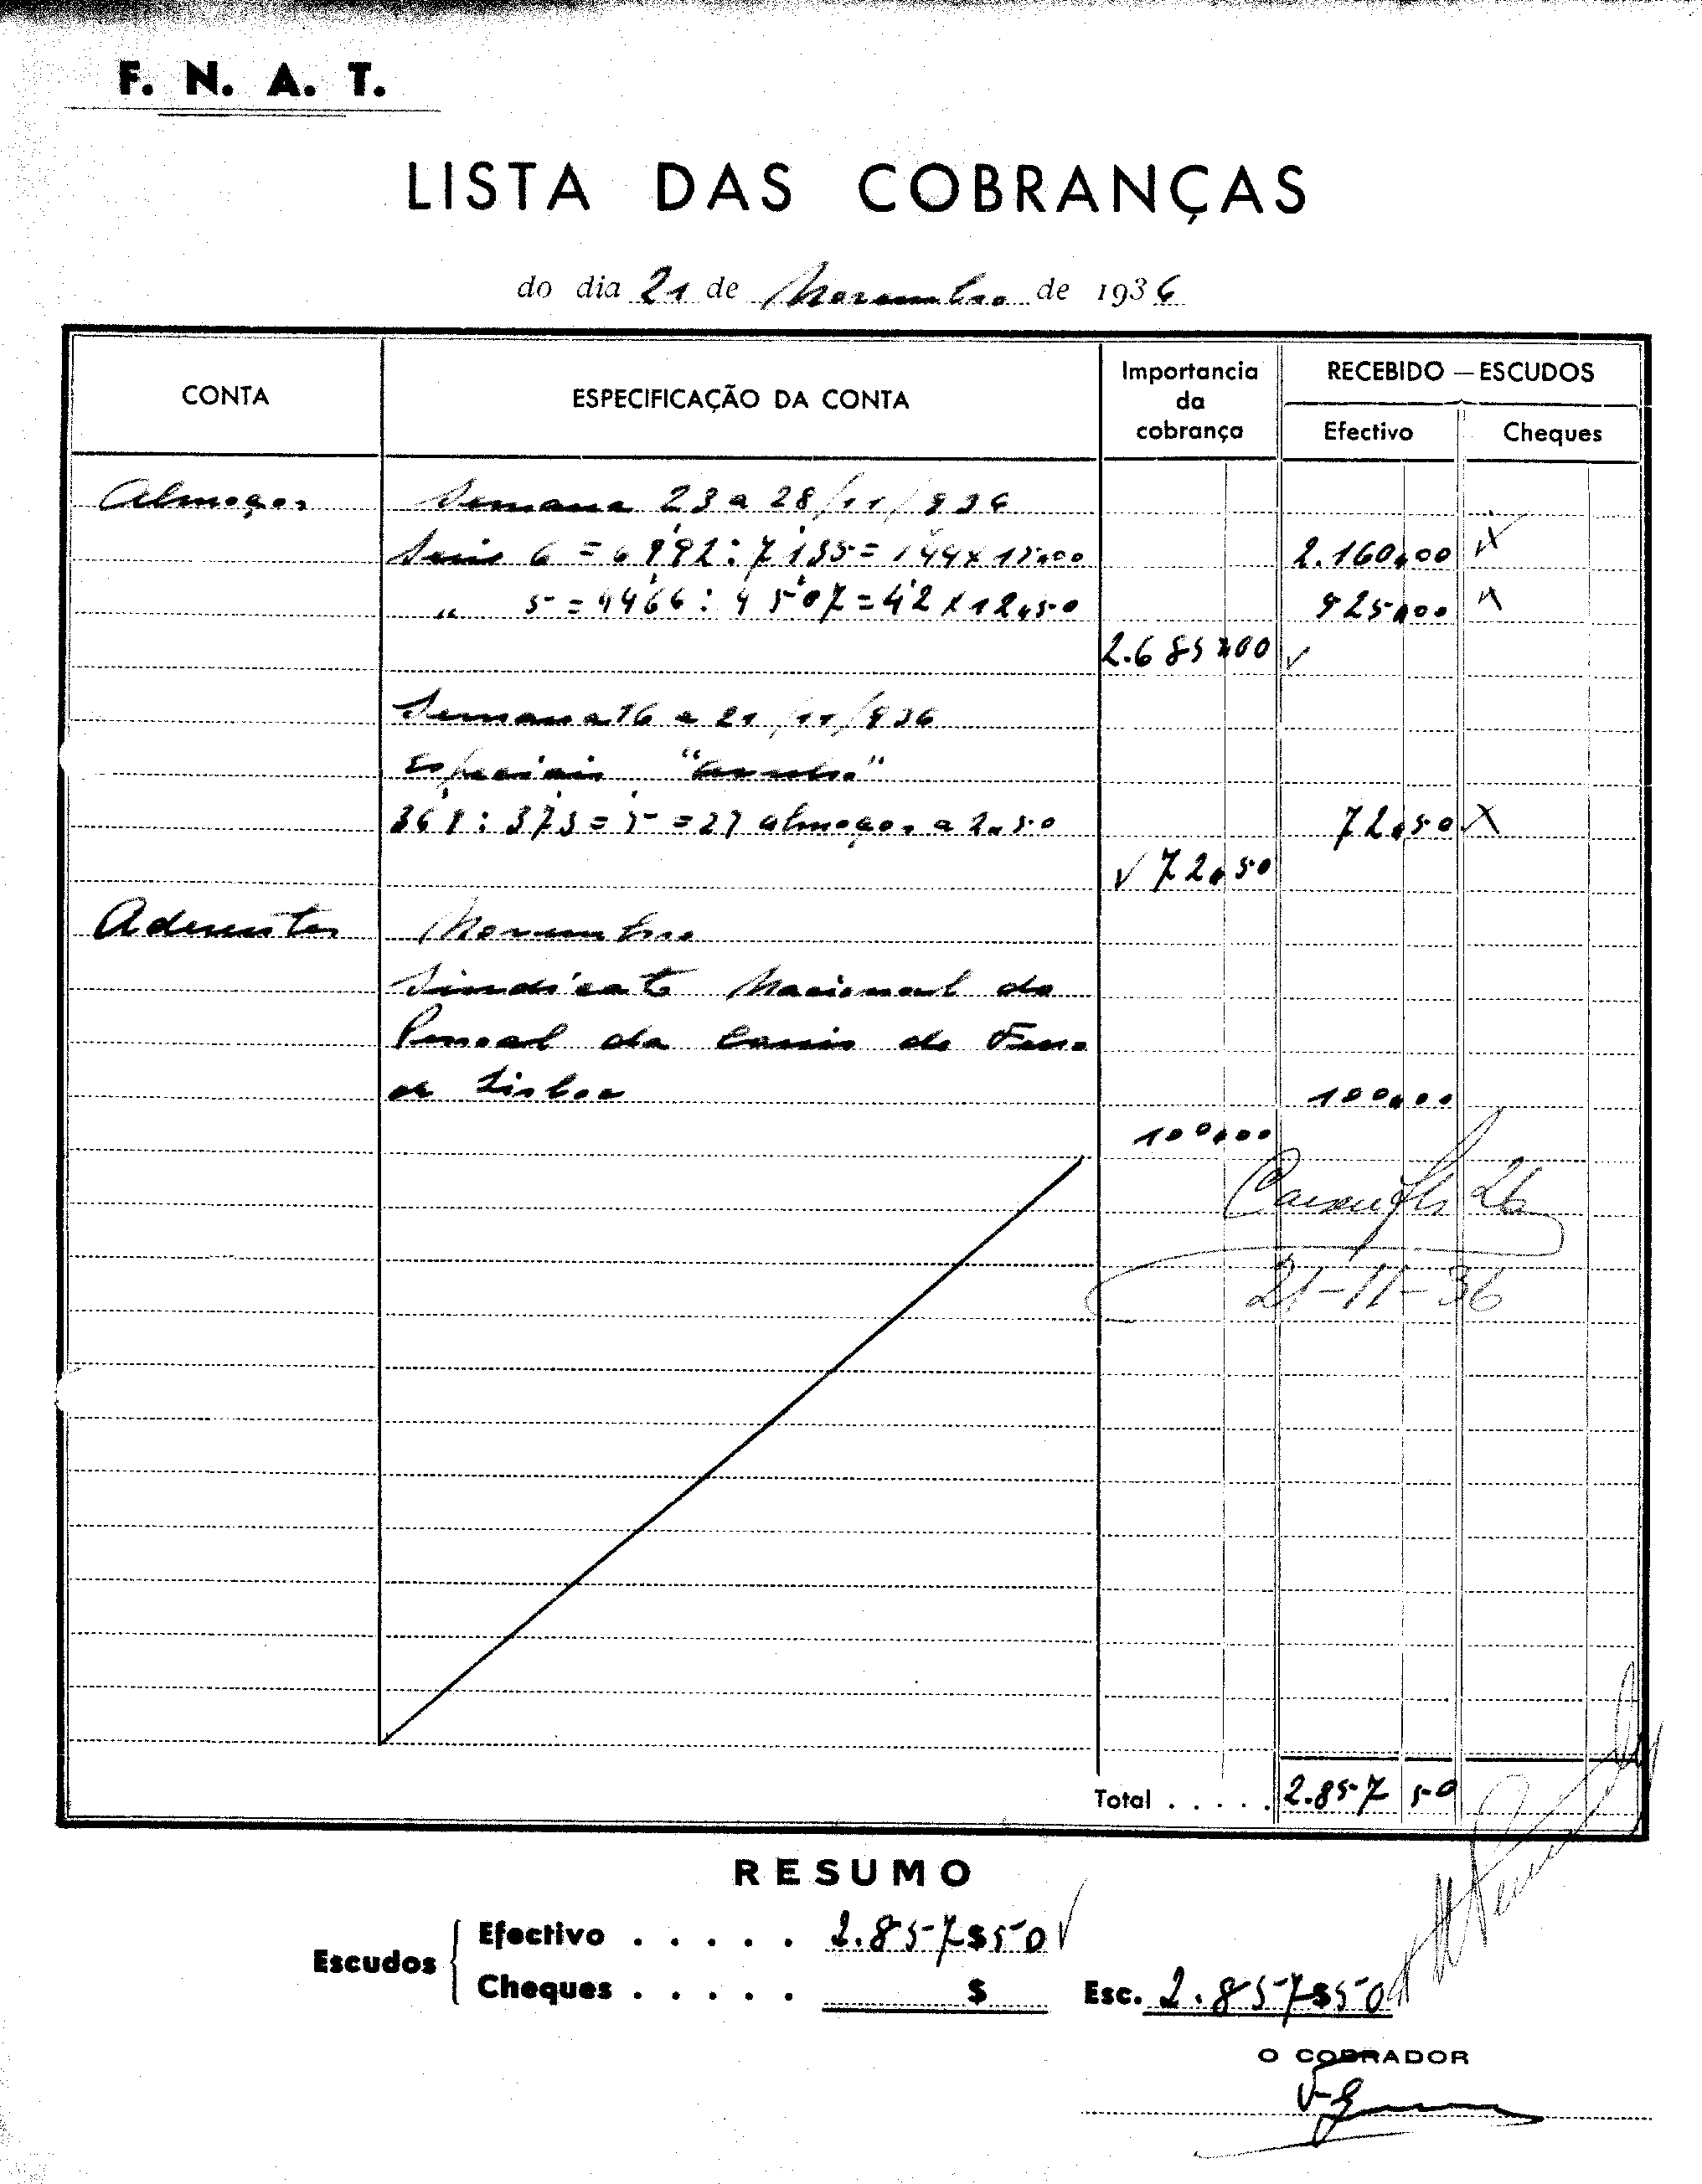 F. N. A. T.
LISTA DAS COBRANÇAS
do dia 21 de Novembro de 1936
CONTA
ESPECIFICAÇÃO DA CONTA
Importancia da cobrança
RECEBIDO — ESCUDOS
Efectivo
Cheques
Almoços Semana 23 a 28/11/936
Serie 6 = 6992 : 7135 = 144 x 15$00 2.160$00
" 5 = 4466 : 4507 = 42 x 12$50 525$00
2.685$00
Semana 16 a 21/11/936
Especiais
: 373 = 5 = 29 almoços a 2$50 72$50
72$50
Aderentes Novembro
Sindicato Nacional do
Pessoal da Carris de Ferro
de Lisboa 100$00
100$00
26
21-11-36
Total . . . . . 2.857 50
RESUMO
Escudos
Efectivo . . . . . 2.857$50
Cheques . . . . . $
Esc. 2.857$50
O COBRADOR